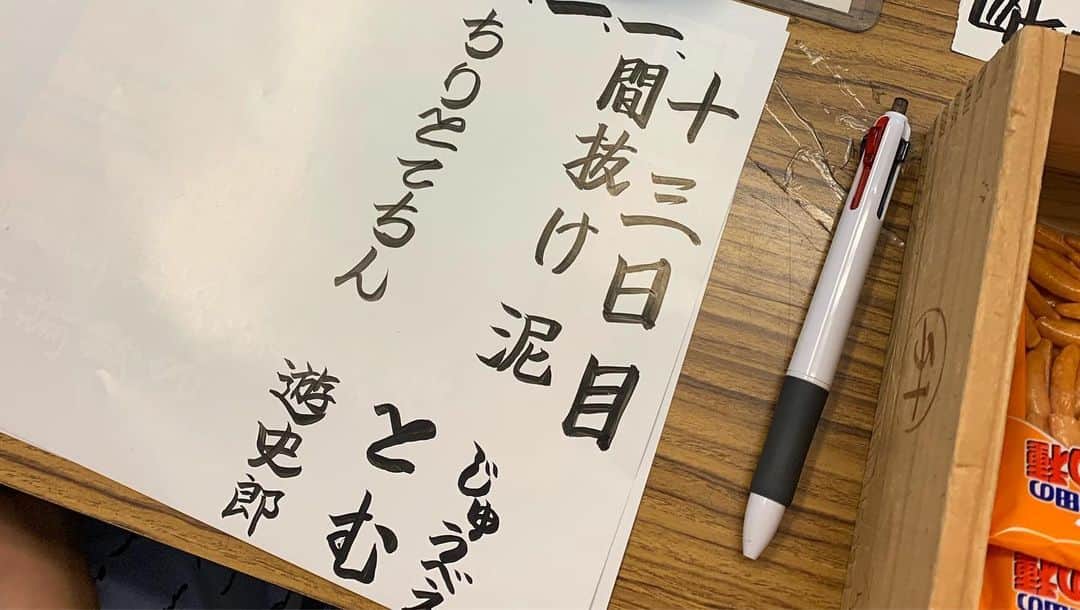 十三日目
一、間抜け 泥 じゅうべえ
一、 とむ
ちりとてちん 遊史郎